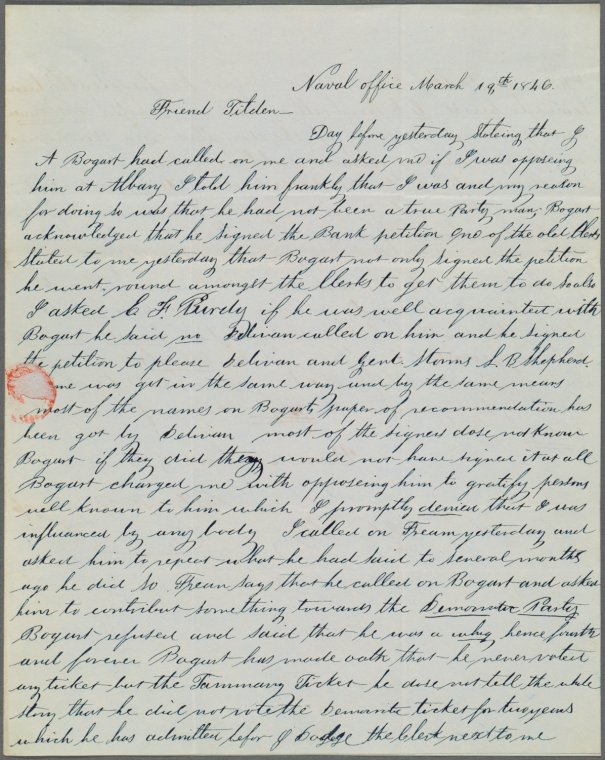 Naval office March 19th 1846
Friend Tilden
Day before yesterday stateing that J
A Bogart had called on me and asked me if I was opposing
him at Albany I told him frankly that I was and my reason
for doing so was that he had not been a true Party man, Bogart
acknowledged that he signed the Bank petition one of the old Clerks
stated to me yesterday that Bogart not only signed the petition
he went round amongst the Clerks to get them to do so also
I asked E F Purdy if he was well acquainted with
Bogart he said no Delivan called on him and he signed
the petition to please Delivan and Genl Storms L B Shepherd
me was got in the same way and by the same means
most of the names on Bogarts paper of recommendation has
been got by Delivan most of the signers dose not know
Bogart if they did they would not have signed it at all
Bogart charged me with opposing him to gratify persons
well known to him which I promptly denied that I was
influenced by any body I called on Fream yesterday and
asked him to repeat what he had said to several months
ago he did so Frean says that he called on Bogart and asked
him to contribut something towards the Demomatic Party
Bogart refused and said that he was a whig hence fourth
and forever Bogart has made oath that he never voted
any ticket but the Tammany Ticket he dose not tell the whole
story that he did not vote the Demomatic ticket for two years
which he has admitted befor J Dodge the Clerk next to me